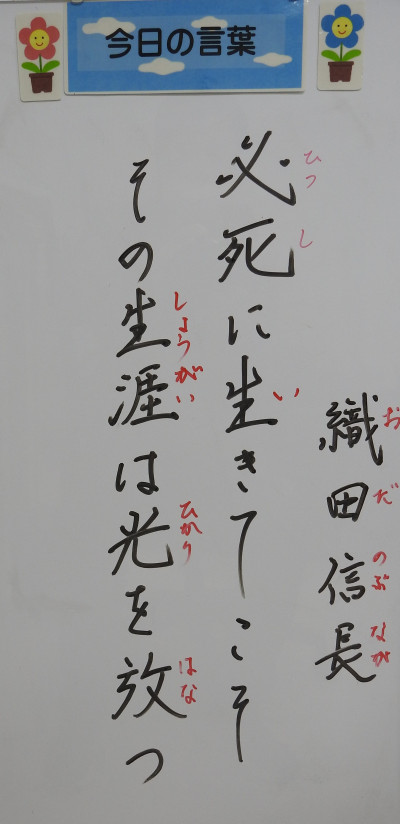 今日の言葉
織田信長
おだのぶなが
必死に生きてこそ
ひっし
い
その生涯は光を放つ
しょうがい
ひかり
はな